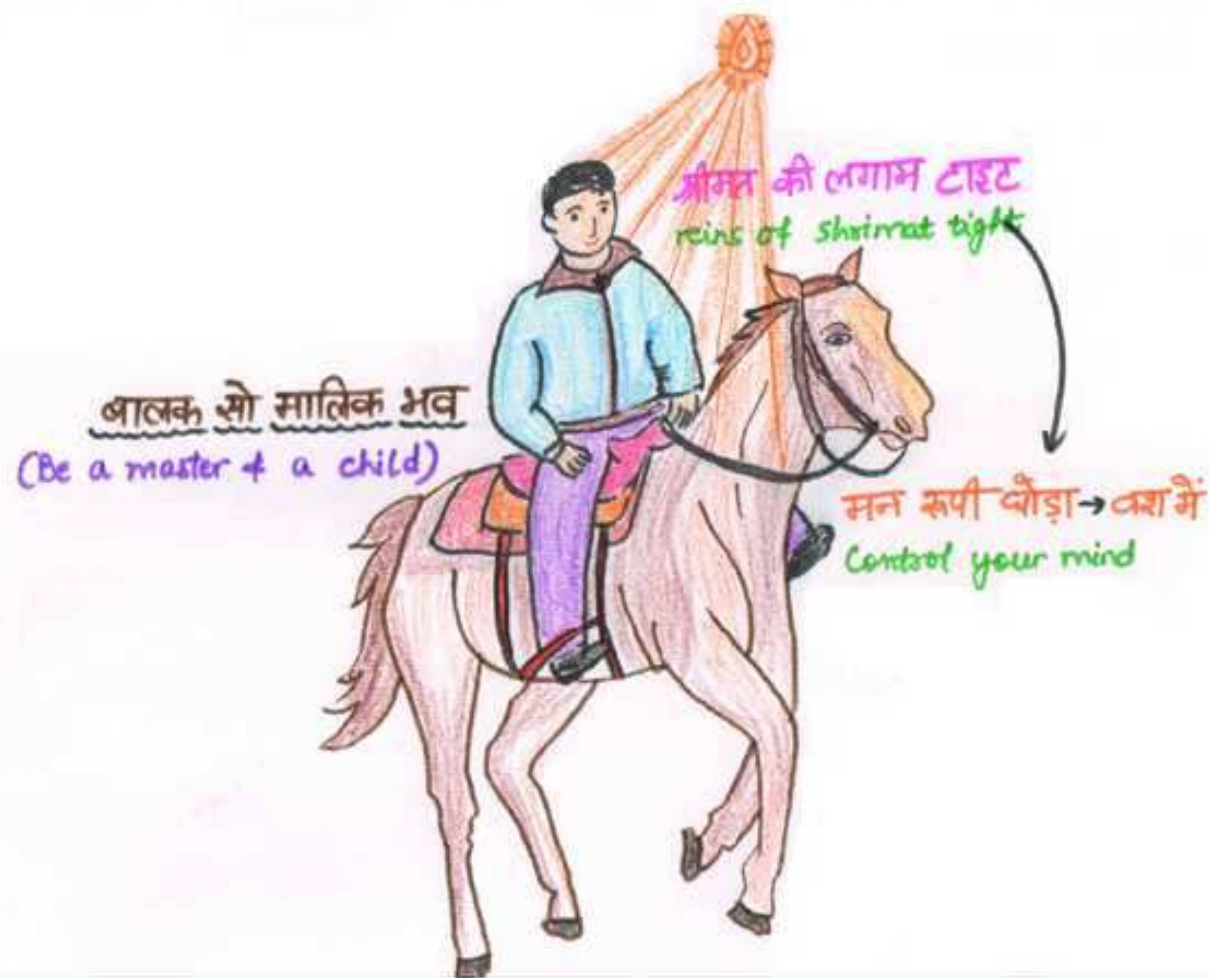 श्रीमत की लगाम टाइट
reins of shrimat tight
बालक सो मालिक भव
(Be a master & a child)
मन रूपी घोड़ा → वश में
Control your mind